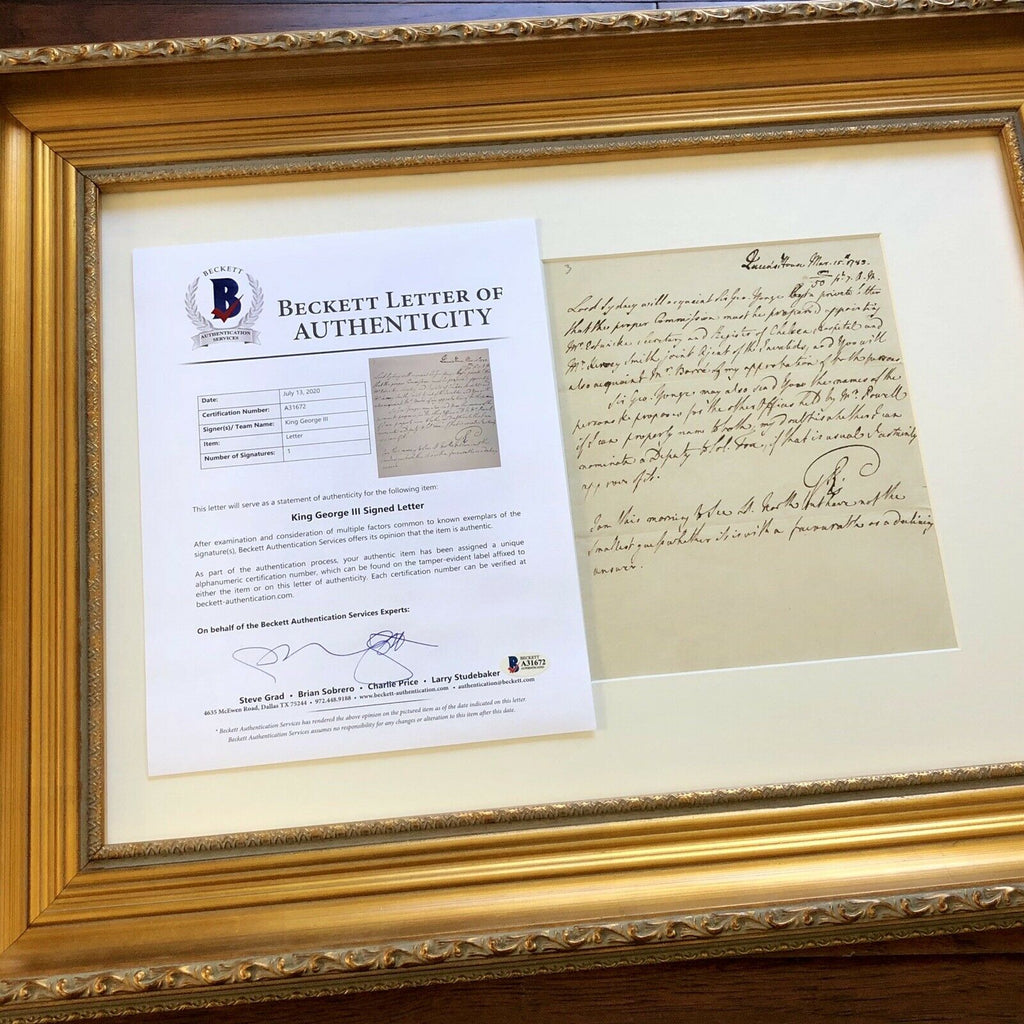 BECKETT
B
AUTHENTICATION
SERVICES
BECKETT LETTER OF
AUTHENTICITY
Date: July 13, 2020
Certification Number: A31672
Signer(s)/ Team Name: King George III
Item: Letter
Number of Signatures: 1
This letter will serve as a statement of authenticity for the following item:
King George III Signed Letter
After examination and consideration of multiple factors common to known exemplars of the
signature(s), Beckett Authentication Services offers its opinion that the item is authentic.
As part of the authentication process, your authentic item has been assigned a unique
alphanumeric certification number, which can be found on the tamper-evident label affixed to
either the item or on this letter of authenticity. Each certification number can be verified at
beckett-authentication.com.
On behalf of the Beckett Authentication Services Experts:
BECKETT
A31672
AUTHENTICATED
Steve Grad • Brian Sobrero • Charlie Price • Larry Studebaker
4635 McEwen Road, Dallas TX 75244 • 972.448.9188 • www.beckett-authentication.com • authentication@beckett.com
* Beckett Authentication Services has rendered the above opinion on the pictured item as of the date indicated on this letter.
Beckett Authentication Services assumes no responsibility for any changes or alteration to this item after this date.
3
Queens House Mar. 15th 1783.
50 pt. 7. A.M.
Lord Sydney will acquaint Sir Geo. Yonge by a private letter
that the proper Commission must be prepared appointing
Mr. Secretary and Register of Chelsea Hospital and
Mr. Smith joint Agent of the Invalids, and You will
also acquaint Mr. Barré of my approbation of both persons
Sir Geo. Yonge may also send You the names of the
persons he proposes for the other Offices held by Mr. Powell
if I can properly name to both, my doubt is whether I can
nominate a Deputy to Col. Fox, if that is usual I certainly
approve of it.
GR
I am this morning to see Ld. North but have not the
smallest guess whether it is with a favourable or a declining
answer.